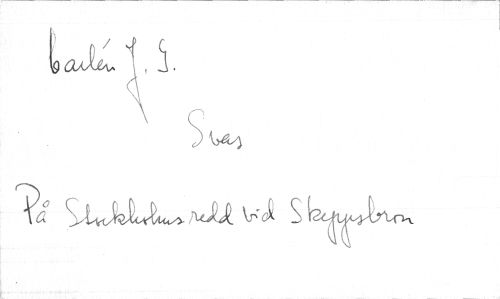 Carlén J. G.
Svea
På Stockholms redd vid Skeppsbron